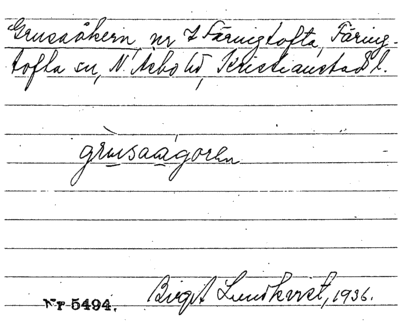 Grusaåkern, nr 2 Färingtofta, Färing-
tofta sn, N. Åsbo hd, Kristianstads l.
grusaagoren
Nr 5494. Birgit Lundkvist, 1936.